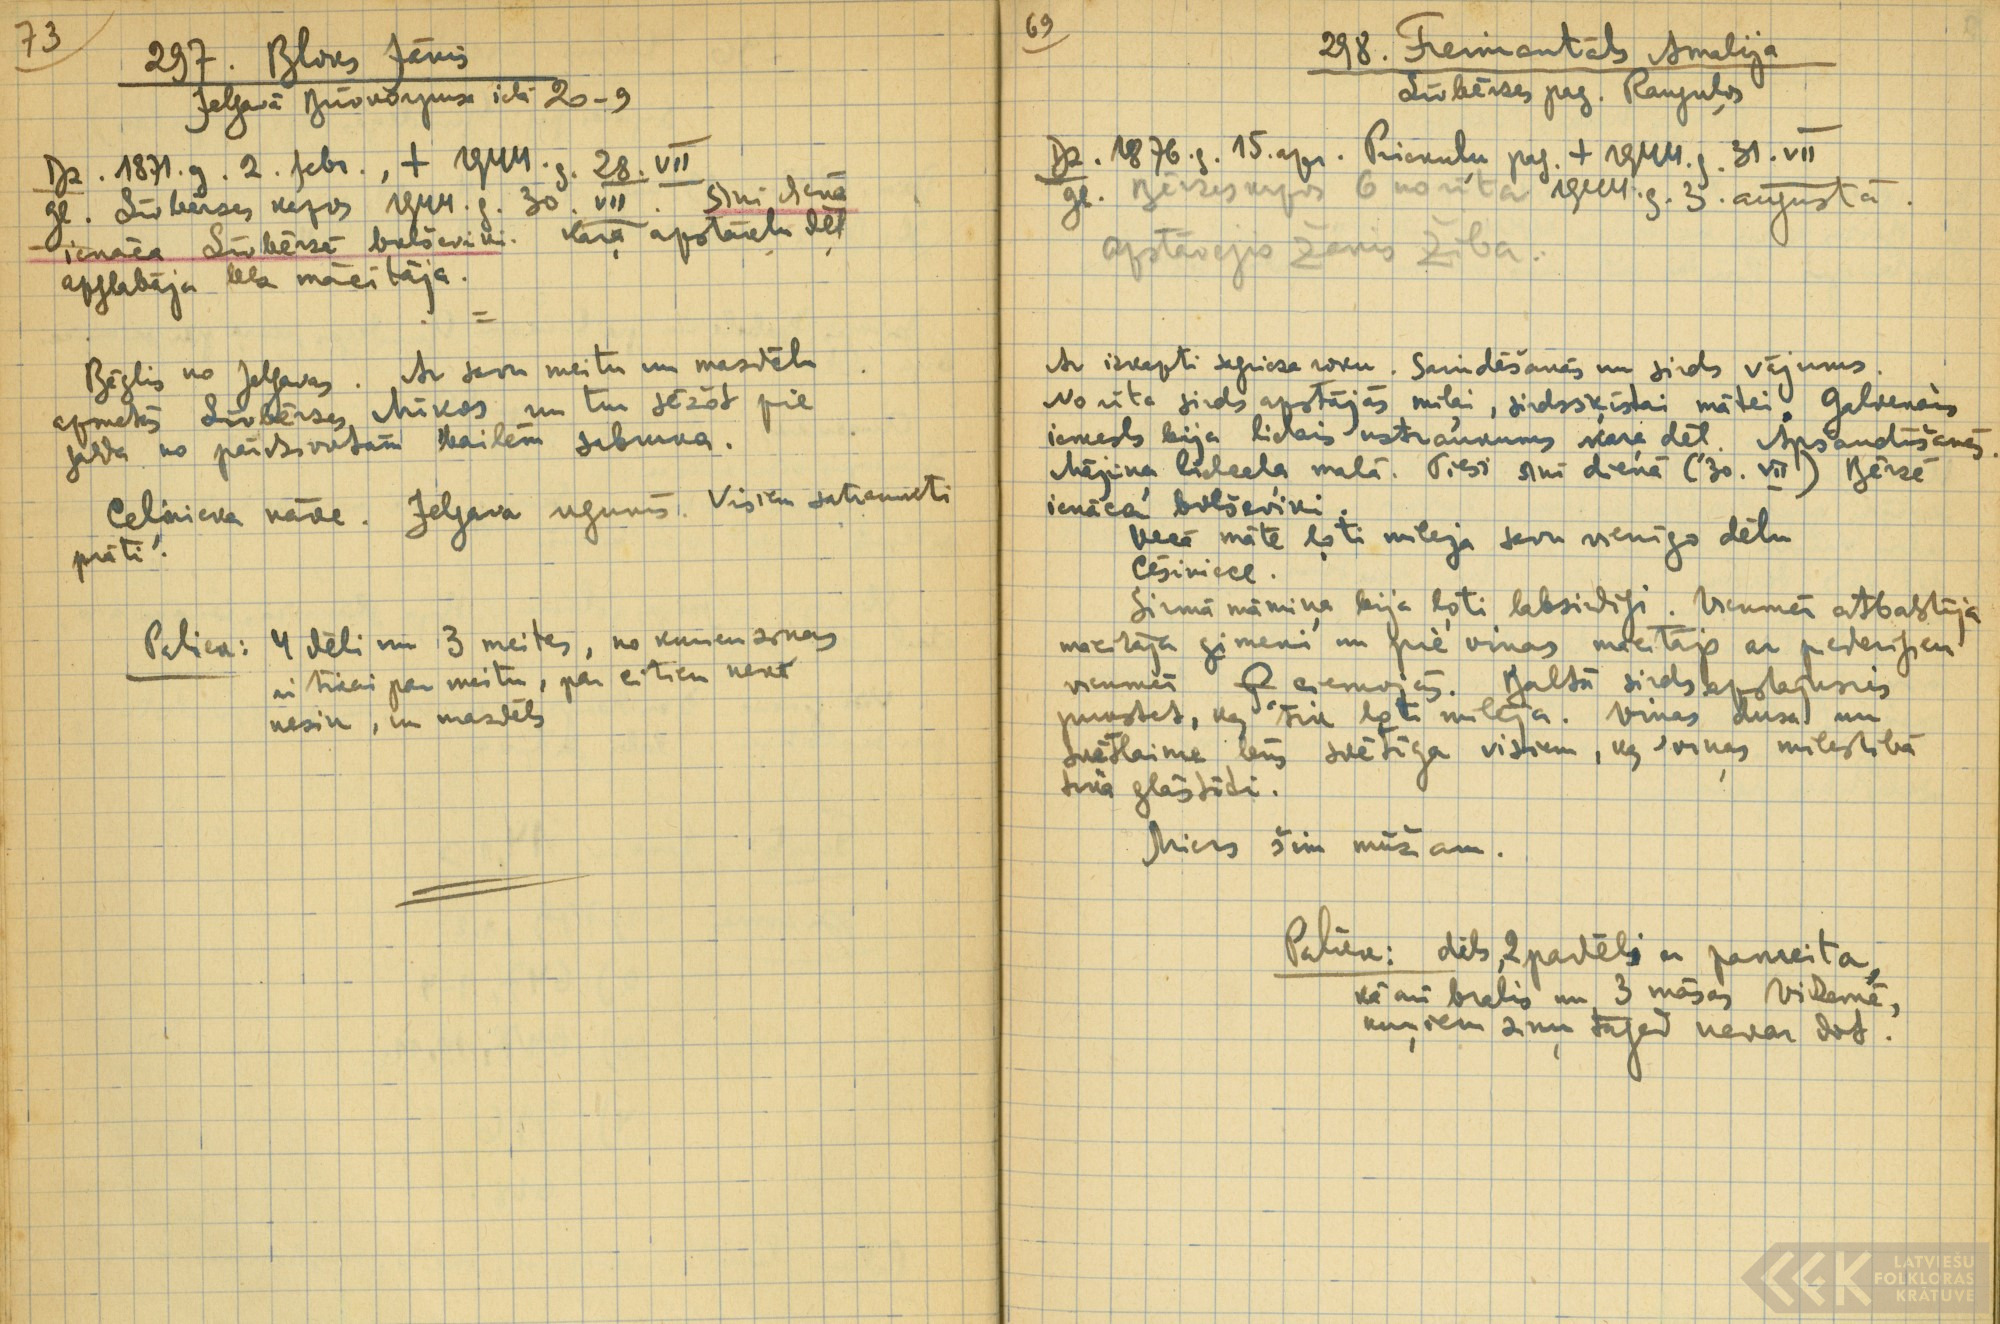 73
297. Bloks Jānis
Jelgavā ielā 20-9
Dz. 1871.g. 2. febr., + 1944.g. 28. VII
gl. Līvbērzes kapos 1944.g. 30. VII. Šinī dienā
ienāca Līvbērzē boļševiki. Kara apstākļu dēļ
apglabāja bez mācītāja.
=
Bēglis no Jelgavas. Ar savu meitu un mazdēlu
apmetās Līvbērzes un tur sēžot pie
galda no pārdzīvotām bailēm sabruka.
Ceļinieka nāve. Jelgava ugunīs. Visiem satraukti
prāti.
Paliek: 4 dēli un 3 meitas, no kuriem ziņas
ir tikai par meitu, par citiem nekā
nezin, un mazdēls
69
298. Freimantāls Amalija
Līvbērzes pag. Rauguļos
Dz. 1876.g. 15.apr. Priekuļu pag. + 1944.g. 31.VII
gl. Bērzes kapos 6 no rīta 1944.g. 3. augustā.
apstāvējis Žanis Žiba.
Ar izkapti sagrieza roku. Saindēšanās un sirds vājums.
No rīta sirds apstājās mīļai, sirdsšķīstai mātei. Galvenais
iemesls bija lielais uztraukums kara dēļ. Apšaudīšanās.
Mājiņa lielceļa malā. Tieši šinī dienā (30. VII) Bērzē
ienāca boļševiki.
Vecā māte ļoti mīlēja savu vienīgo dēlu
Cēsiniece.
Sirmā māmiņa bija ļoti labsirdīgi. Vienmēr atbalstīja
mācītāja ģimeni un pie viņas mācītājs ar piederīgiem
vienmēr ciemojās. Baltā sirds apstājusies
pukstēt, kas tik ļoti mīlēja. Viņas dusa un
svētlaime būs svētīga visiem, kas viņas mīlestībā
tika glāstīti.
Miers šim mūžam.
Paliek: dēls, 2 padēli ar pameita,
kā arī brālis un 3 māsas Vidzemē,
kuŗiem ziņu tagad nevar dot.
LATVIEŠU
FOLKLORAS
KRĀTUVE